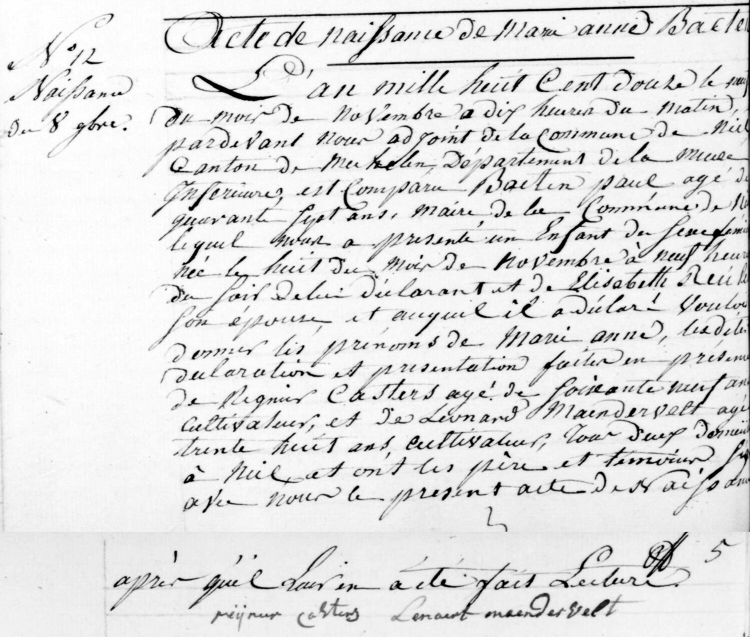 Acte de naissance de Marie anne Baete
N.º 12
Naissance
du 8 9bre.
L'an mille huit Cent douze le neuf
du mois de Novembre a dix heures du matin,
pardevant nous adjoint de la Commune de Niel
Canton de Mechelen, Département de la meuse
Inferieure, est Comparu Baeten paul agé de
quarant sept ans, maire de la Commune de
lequel nous a presenté un Enfant du Sexe fémin
née le huit du Mois de Novembre à neuf heures
du soir de lui déclarant et de Elisabeth
Son épouse, et auquel il a déclaré vouloir
donner les prénoms de Marie anne, les dites
declaration et presentation faites en présence
de Regnier Casters agé de soixante neuf ans
Cultivateur, et de Leonard Maendervelt agé
trente huit ans, cultivateur, Tous deux
à Niel, et ont les père et témoins
avec nous le present acte de Naissance
après qu'il leur en a été fait Lecture 5
reijnier casters Lenaert maendervelt